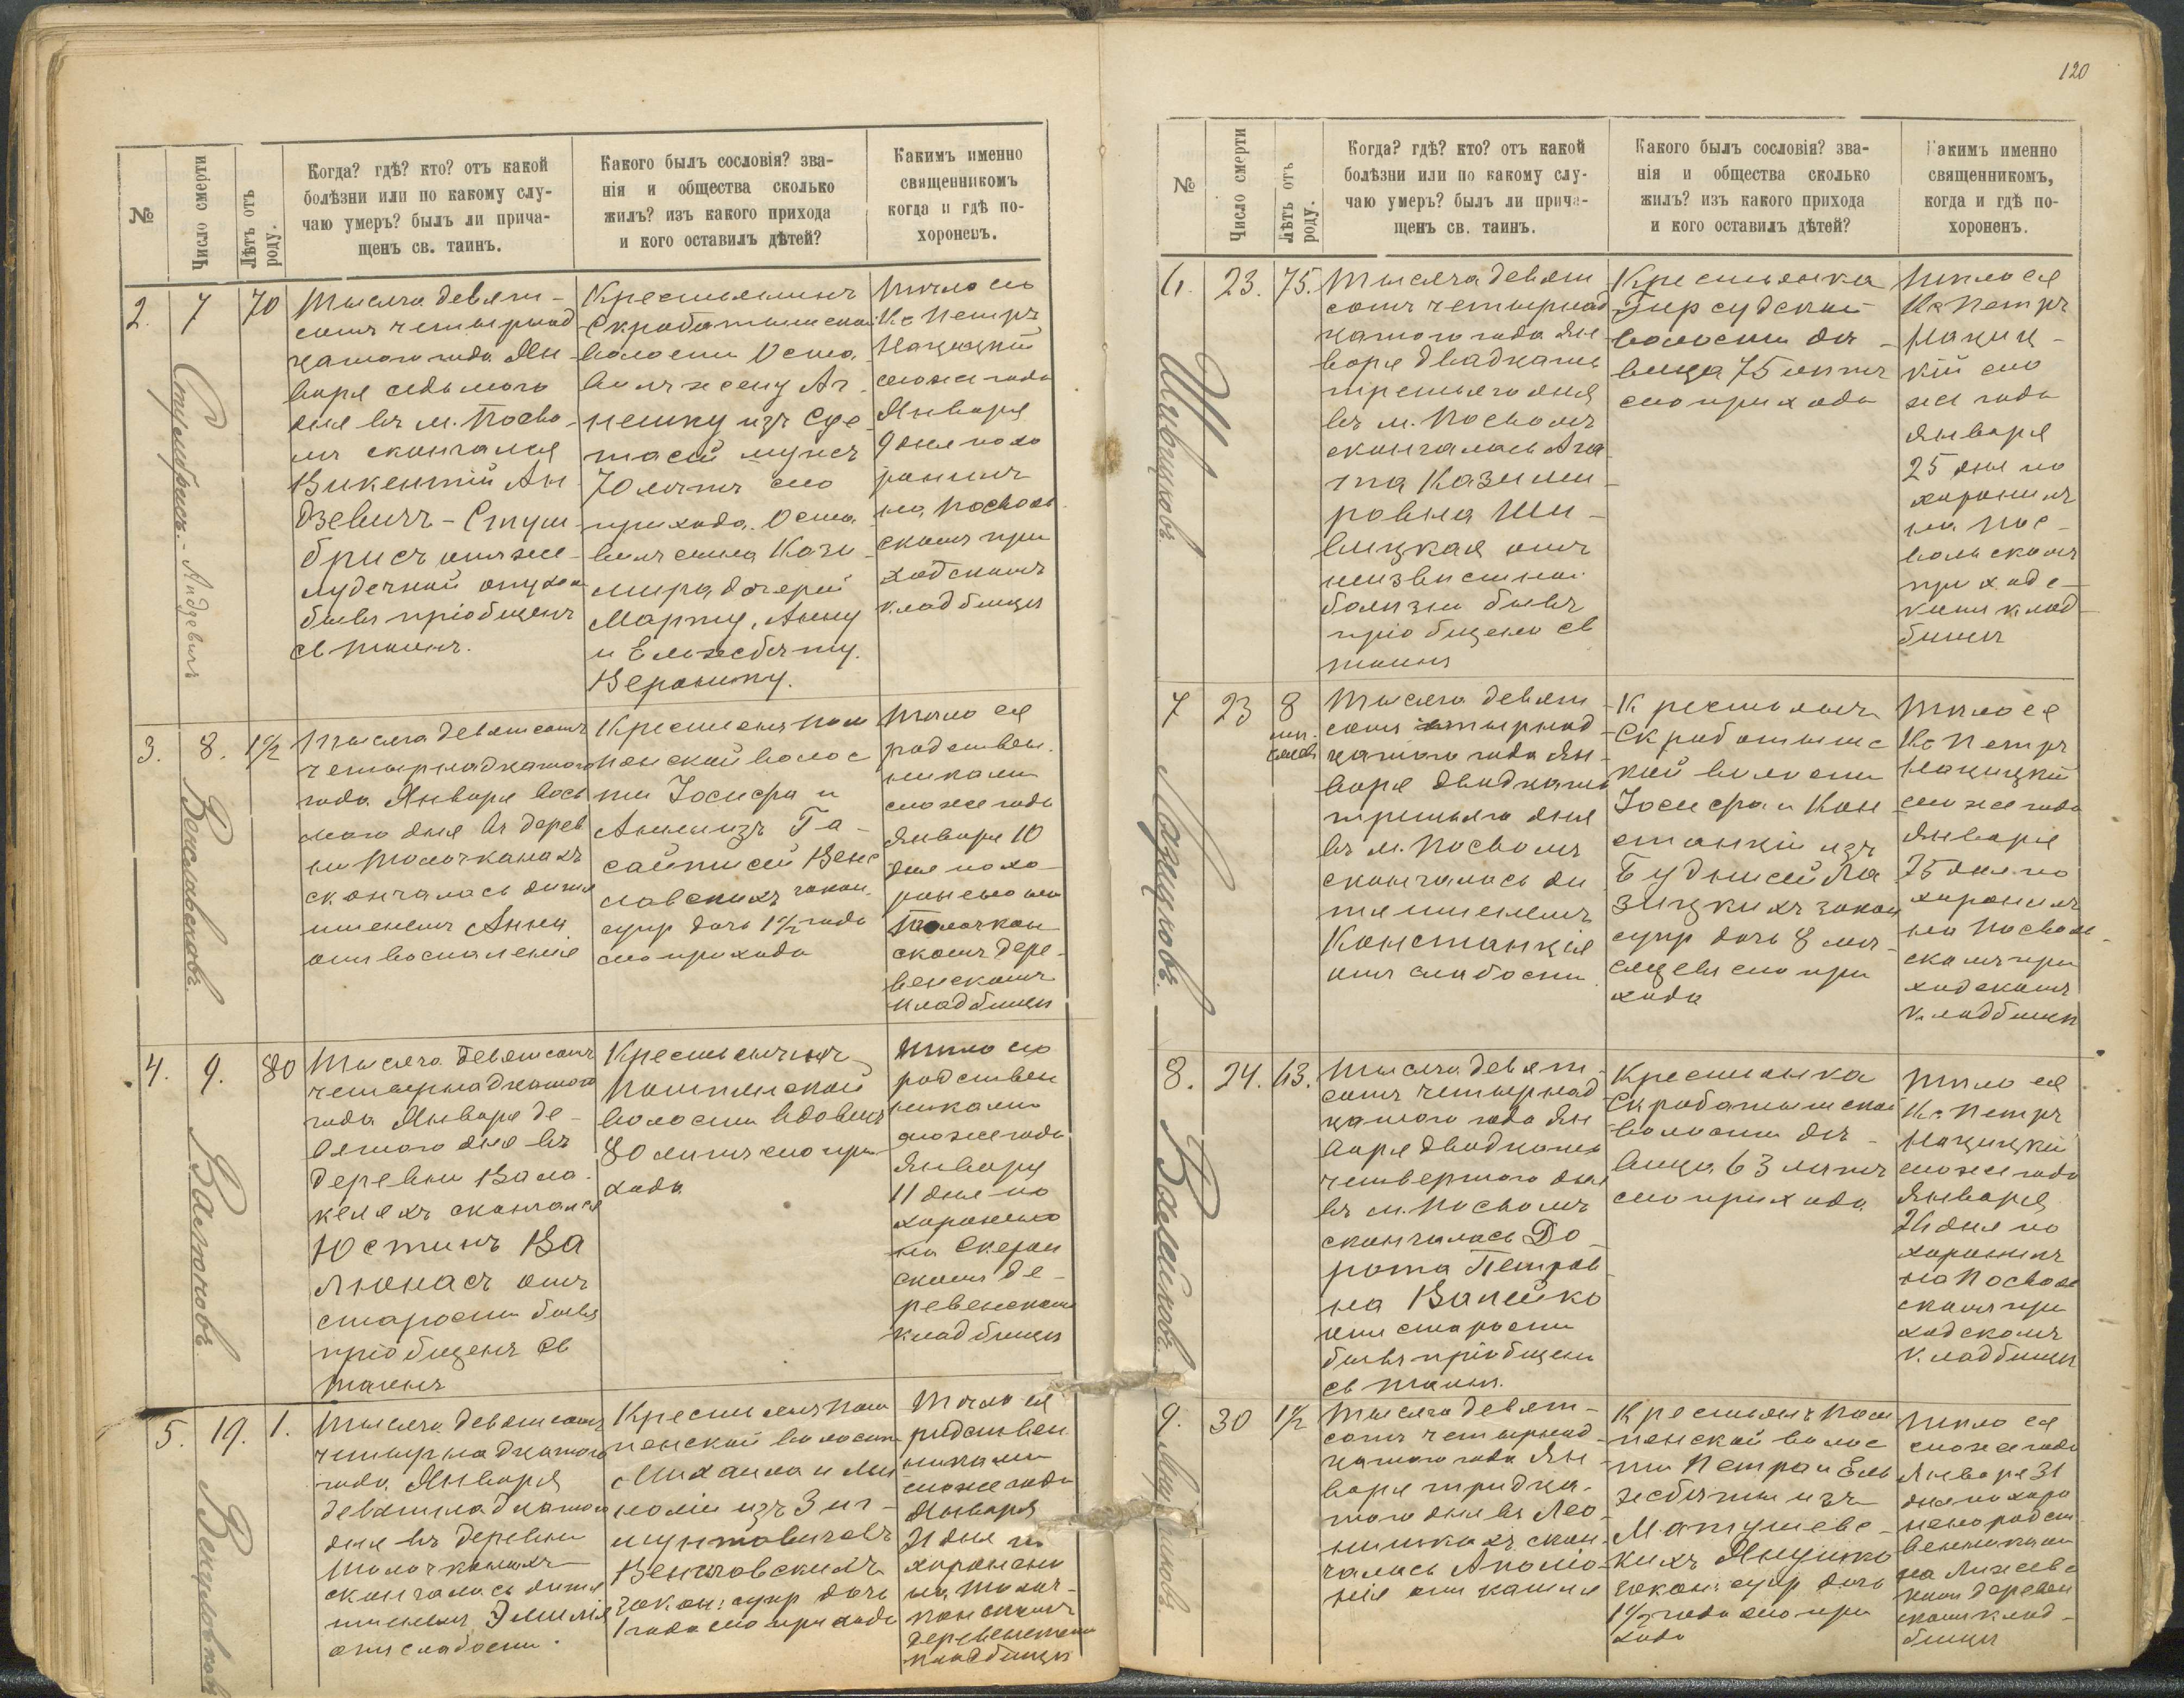 120
№
Число смерти
Лѣтъ отъ
роду.
Когда? гдѣ? кто? отъ какой
болѣзни или по какому слу-
чаю умеръ? былъ ли прича-
щенъ св. таинъ.
Какого былъ сословія? зва-
нія и общества сколько
жилъ? изъ какого прихода
и кого оставилъ дѣтей?
Какимъ именно
священникомъ
когда и гдѣ по-
хороненъ.
2.
7
70
Тысяча девять-
сотъ четырнад
цатого года Ян-
варя седьмого
дня въ м. Посво-
лѣ скончался
Викентій Ан-
дзевичъ-Стум-
брисъ отъ же-
лудечной опухоли
бывъ пріобщенъ
св таинъ.
Крестьянинъ
Скробатышской
волости Оста-
вилъ жену Аг-
нешку изъ
70 лѣтъ сего
прихода. Оста
вилъ сына Кази
мира дочерей
Марту, Анну
и Ельжбѣту.
Веронику.
Тѣло его
Кс Петръ
Нацицкій
сего же года
Января
9 дня похо
ронилъ
на Посволь
скомъ при
ходскомъ
кладбищѣ
Стумбрисъ-Андзевичъ
3.
8.
1 1/2
Тысяча девятьсотъ
четырнадцатого
года Января вось
мого дня въ дерев
нѣ Толочканахъ
скончалась дитя
именемъ Анна
отъ воспаленія
Крестьянъ Пом
пянской волос
ти Іосифа и
Анны изъ Га-
сайтисей Венс
лавскихъ закон.
супр дочь 1 1/2 года
сего прихода
Тѣло ея
родствен.
никами
сего же года
Января 10
дня похо
ронено на
Толочкан
скомъ дере-
венскомъ
кладбищѣ
Венславсковъ.
4.
9.
80
Тысяча девятьсотъ
четырнадцатого
года Января де-
вятого дня въ
деревни Вала-
келяхъ скончался
Юстинъ Ва
люнасъ отъ
старости бывъ
пріобщенъ св
таинъ
Крестьянинъ
Помпянской
волости вдовецъ
80 лѣтъ сего при
хода
Тѣло его
родствен
никами
сего же года
Январу
11 дня по
хоронено
на
скомъ де-
ревенскомъ
кладбищѣ
5.
19.
1.
Тысяча девятьсотъ
четырнадцатого
года Января
девятнадцатого
дня въ деревни
Толочканахъ
скончалась дитя
именемъ Эмилія
отъ слабости.
Крестьянъ Пом
пянской волости
Михаила и Ан
полій изъ Зиг-
мунтовичовъ
Венславскихъ
закон: супр дочь
1 года сего прихода
Тѣло ея
родствен
никами
сего же года
Января
21 дня по
хоронено
на Толоч-
канскомъ
деревенскомъ
кладбищѣ
№
Число смерти
Лѣтъ отъ
роду.
Когда? гдѣ? кто? отъ какой
болѣзни или по какому слу-
чаю умеръ? былъ ли прича-
щенъ св. таинъ.
Какого былъ сословія? зва-
нія и общества сколько
жилъ? изъ какого прихода
и кого оставилъ дѣтей?
Какимъ именно
священникомъ,
когда и гдѣ по-
хороненъ.
6.
23.
75.
Тысяча девять
сотъ четырнад
цатого года Ян-
варя двадцать
третьяго дня
въ м. Посволѣ
скончалась Ага
та Казими
ровна Ши-
вицкая отъ
неизвѣстной
болѣзни бывъ
пріобщена св
таинъ
Крестьянка
Гирсудской
волости дѣ-
вица 75 лѣтъ
сего прихода
Тѣло ея
Кс Петръ
Нациц-
кій сего
же года
Января
25 дня по
хоронилъ
на Пос-
вольскомъ
приходс-
комъ клад-
бищѣ
Шивицковъ
7
23
8
мѣ.
сяцевъ
Тысяча девять
сотъ четырнад
цатого года Ян-
варя двадцать
третьяго дня
въ м. Посволѣ
скончалась ди
тя именемъ
Констанція
отъ слабости
Крестьянъ
Скробатышс
кой волости
Іосифа и Кон
станціи изъ
Будрисей Ла
зицкихъ закон
супр дочь 8 мѣ-
сяцевъ сего при
хода
Тѣло ея
Кс Петръ
Нацицкій
сего же года
Января
25 дня по
хоронилъ
на Посволь-
скомъ при
ходскомъ
кладбищѣ
Лазицковъ.
8.
24.
63.
Тысяча девять-
сотъ четырнад
цатого года Ян
варя двадцать
четвертого дня
въ м. Посволѣ
скончалась До-
рота Петров-
на Вапейко
отъ старости
бывъ пріобщена
св таинъ.
Крестьянка
Скробатышской
волости дѣ-
вица 63 лѣтъ
сего прихода
Тѣло ея
Кс Петръ
Нацицкій
сего же года
Января
26 дня по
хоронилъ
на Посволь
скомъ при
ходскомъ
кладбищѣ
9.
30
1 1/2
Тысяча девять-
сотъ четырнад-
цатого года Ян-
варя тридца-
того дня въ Лео-
нишкахъ скон-
чалась Аполо-
нія отъ кашля
Крестьянъ Пом
пянской волос
ти Петра и Ель
жбѣты изъ
Матушевс-
кихъ Янушко
закон: супр дочь
1 1/2 года сего при
хода
Тѣло ея
сего же года
Января 31
дня похоро
нено родст
венниками
на
комъ деревен
скомъ клад-
бищѣ